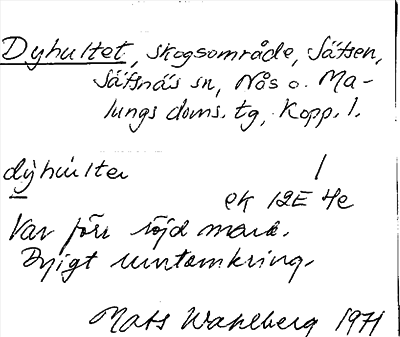 Dyhultet, skogsområde, Sätsen,
Säfsnäs sn, Nås o. Ma-
lungs doms. tg, Kopp. l.
dỳhúlter /
ek 12E 4e
Var förr röjd mark.
Dyigt runtomkring.
Mats Wahlberg 1971